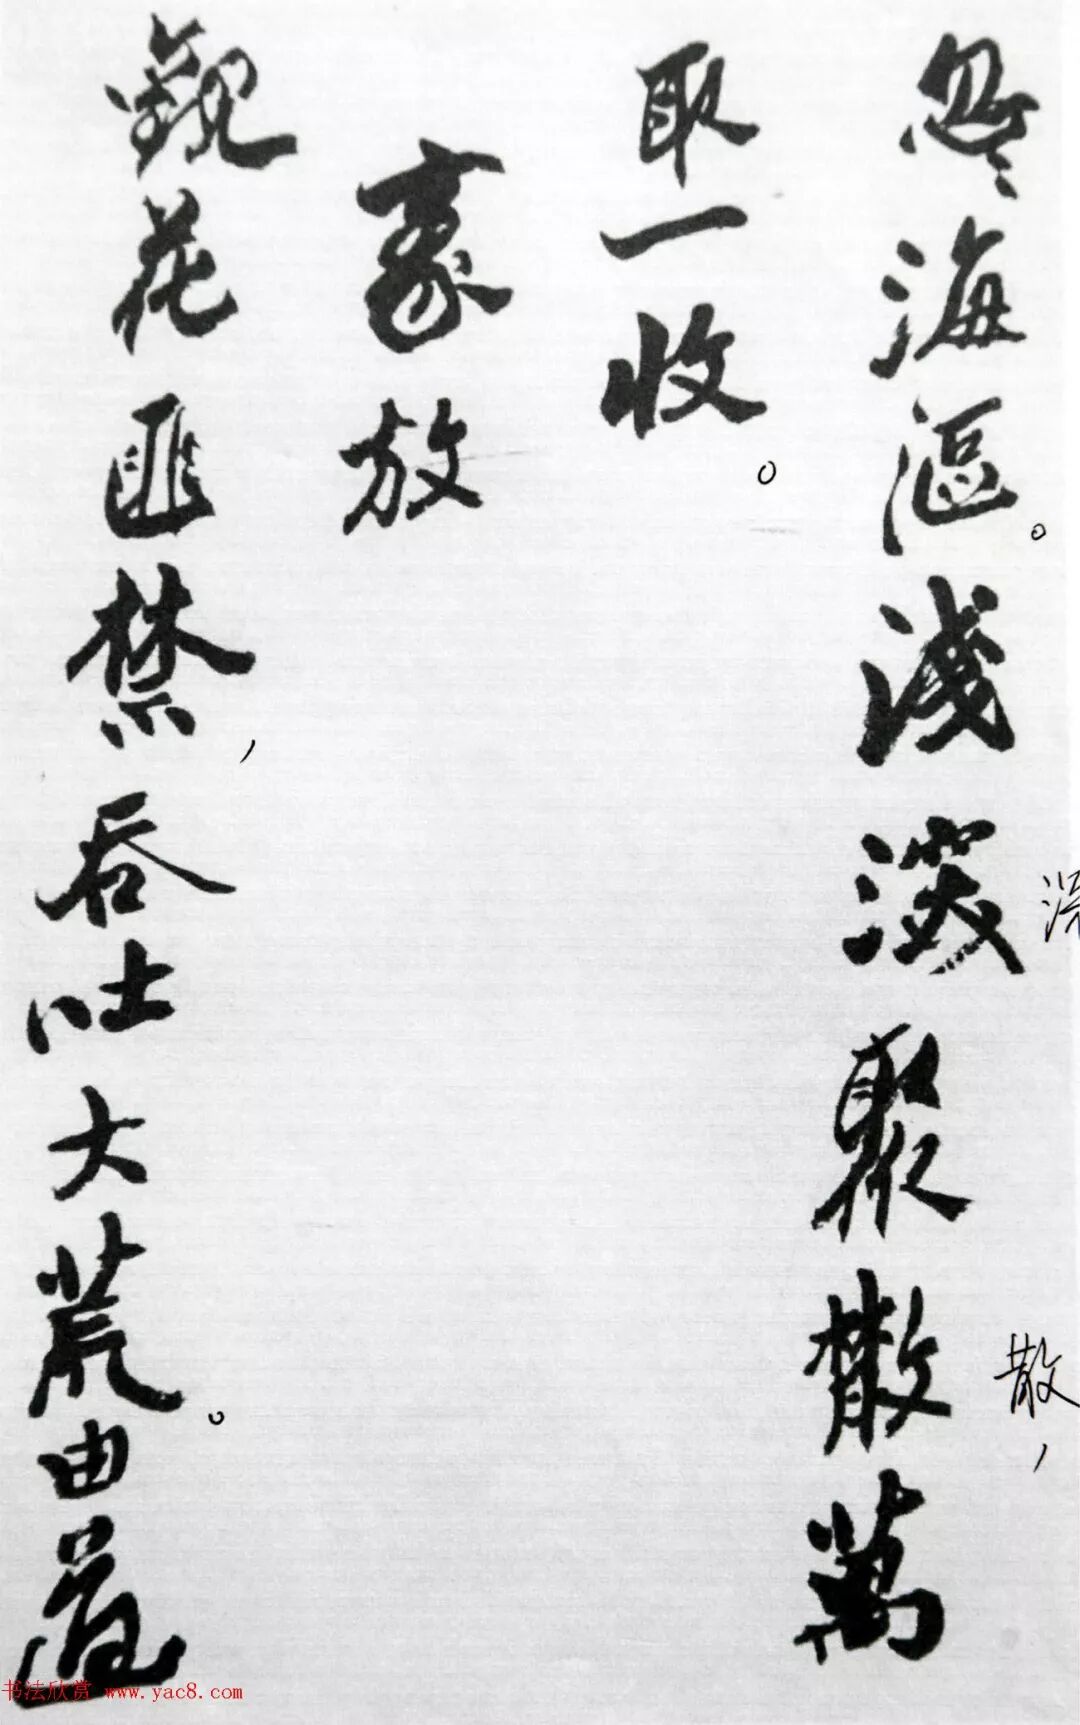 忽海漚。淺深聚散，萬
取一收。
豪放
觀花匪禁，吞吐大荒。由道
深
散
书法欣赏 www.yac8.com